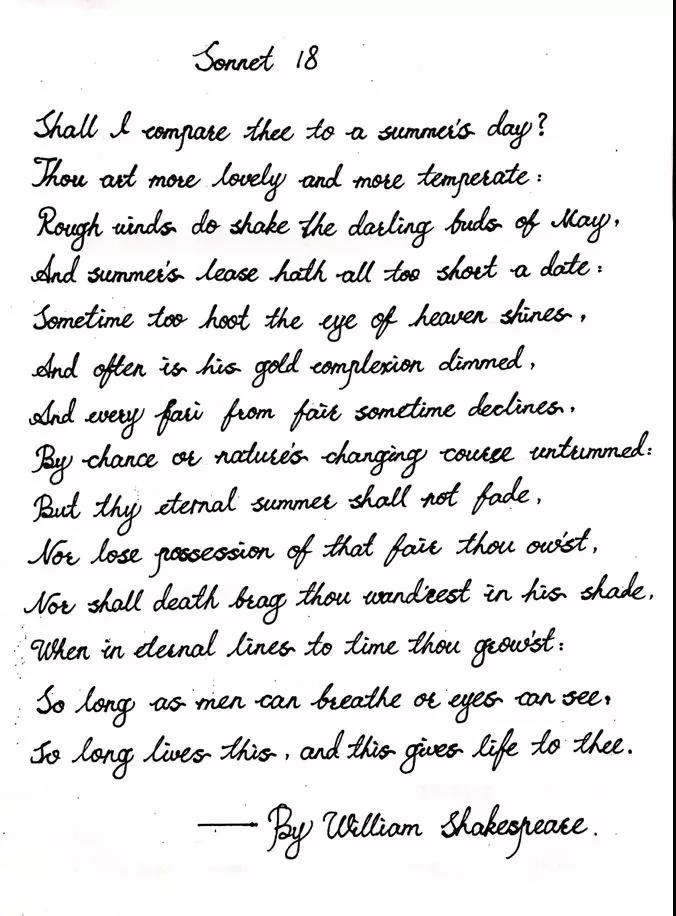 Sonnet 18
Shall I compare thee to a summer's day?
Thou art more lovely and more temperate:
Rough winds do shake the darling buds of May,
And summer's lease hath all too short a date:
Sometime too hoot the eye of heaven shines,
And often is his gold complexion dimmed,
And every fari from fair sometime declines,
By chance or nature's changing course untrummed:
But thy eternal summer shall not fade,
Nor lose possession of that fair thou ow'st,
Nor shall death brag thou wand'rest in his shade,
When in eternal lines to time thou grow'st:
So long as men can breathe or eyes can see,
So long lives this, and this gives life to thee.
—— By William Shakespeare.